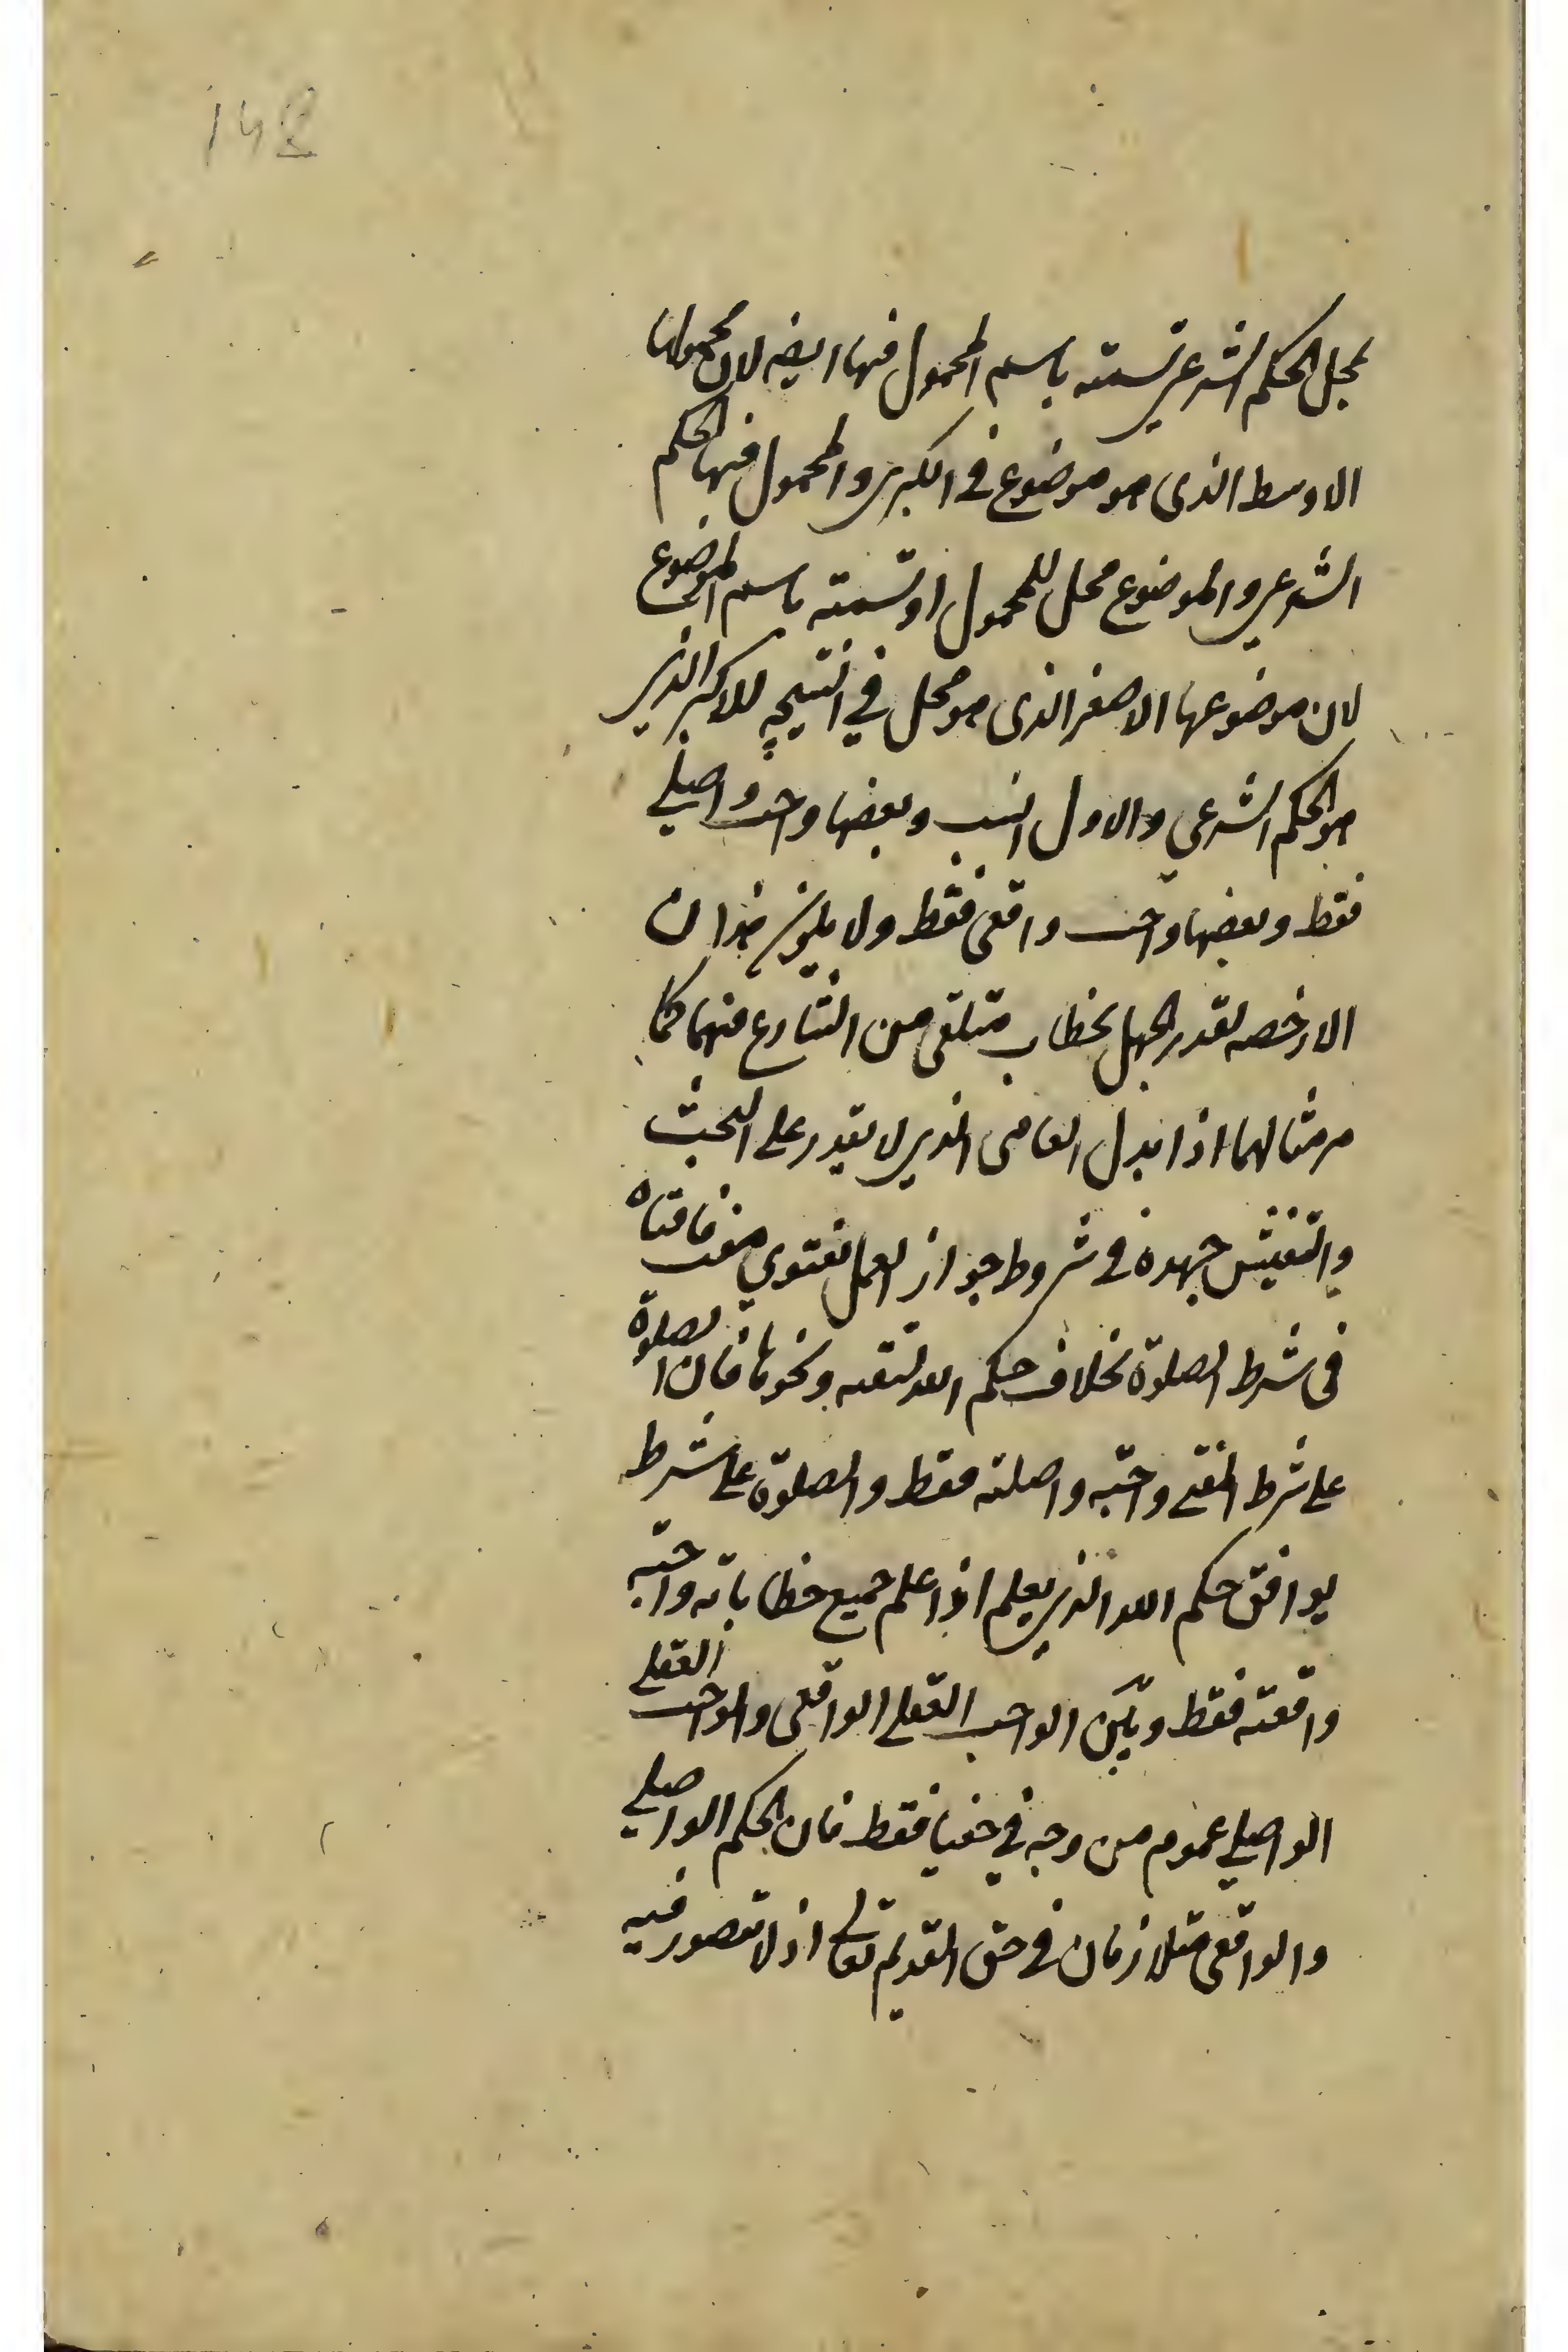 142
لمحل الحكم الشرعي تسمته باسم المحمول فيها ايضه لان محمولها
الاوسط الذى هو موضوع في الكبرى والمحمول فيها الحكم
الشرعي والموضوع محل للمحمول او تسمته باسم الموضوع
لان موضوعها الاصغر الذى هو محل في النتيجه للاكبر الذي
هو الحكم الشرعي والاول انسب وبعضها واجب واصلي
فقط وبعضها واجب واقعى فقط ولا يكون هذان
الا رخصه لقدر الجهل بخطاب متلقى من الشارع منهما كما
مر مثالهما اذا بذل العامى الذي لا يقدر على البحث
والتفتيش جهده في شروط جواز العمل بفتوي مفت فافتاه
في شرط الصلوة بخلاف حكم الله لتقيه ونحوها فان الصلوة
على شرط المفتي واجبه واصليه فقط والصلوة على شرط
يوافق حكم الله الذي يعلم اذا علم جميع خطاباته واجبه
واقعيه فقط وبين الواجب العقلي الواقعى والواجب العقلي
الواصلي عموم من وجه في حقنا فقط فان الحكم الواصلي
والواقعى متلازمان في حق القديم تعالى اذ لا تتصور فيه